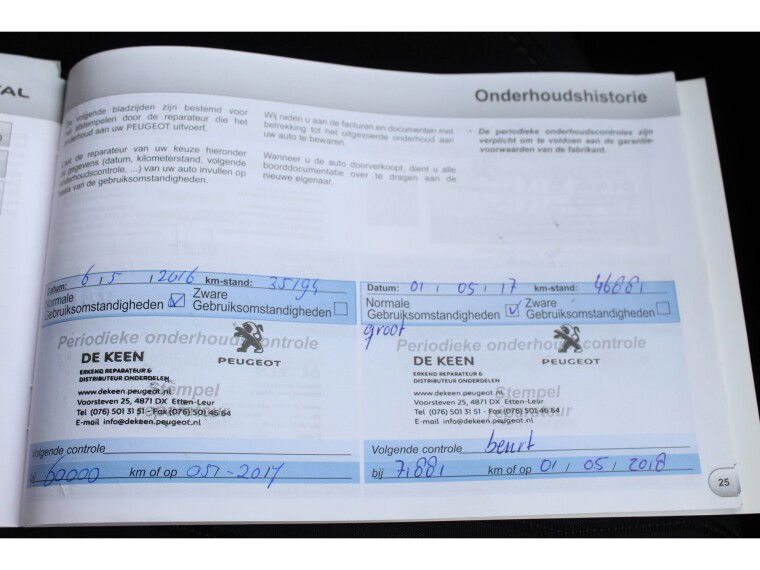 TAL
Onderhoudshistorie
De volgende bladzijden zijn bestemd voor
het afstempelen door de reparateur die het
onderhoud aan uw PEUGEOT uitvoert.
Laat de reparateur van uw keuze hieronder
de gegevens (datum, kilometerstand, volgende
onderhoudscontrole, ...) van uw auto invullen op
basis van de gebruiksomstandigheden.
Wij raden u aan de facturen en documenten met
betrekking tot het uitgevoerde onderhoud aan
uw auto te bewaren.
Wanneer u de auto doorverkoopt, dient u alle
boorddocumentatie over te dragen aan de
nieuwe eigenaar.
• De periodieke onderhoudscontroles zijn
verplicht om te voldoen aan de garantie-
voorwaarden van de fabrikant.
Datum: 6 / 5 / 2016 km-stand: 35194
Normale Gebruiksomstandigheden
Zware Gebruiksomstandigheden
Periodieke onderhoudscontrole
DE KEEN
PEUGEOT
ERKEND REPARATEUR &
DISTRIBUTEUR ONDERDELEN
www.dekeen.peugeot.nl
Stempel
Voorsteven 25, 4871 DX Etten-Leur
Tel (076) 501 31 51 - Fax (076) 501 46 64
E-mail info@dekeen.peugeot.nl
Volgende controle
bij 60000 km of op 05/-2017
Datum: 01 / 05 / 17 km-stand: 46881
Normale Gebruiksomstandigheden
Zware Gebruiksomstandigheden
groot
Periodieke onderhoudscontrole
DE KEEN
PEUGEOT
ERKEND REPARATEUR &
DISTRIBUTEUR ONDERDELEN
www.dekeen.peugeot.nl
Stempel
Voorsteven 25, 4871 DX Etten-Leur
reparateur
Tel (076) 501 31 51 - Fax (076) 501 46 64
E-mail info@dekeen.peugeot.nl
Volgende controle beurt
bij 71881 km of op 01 / 05 / 2018
25